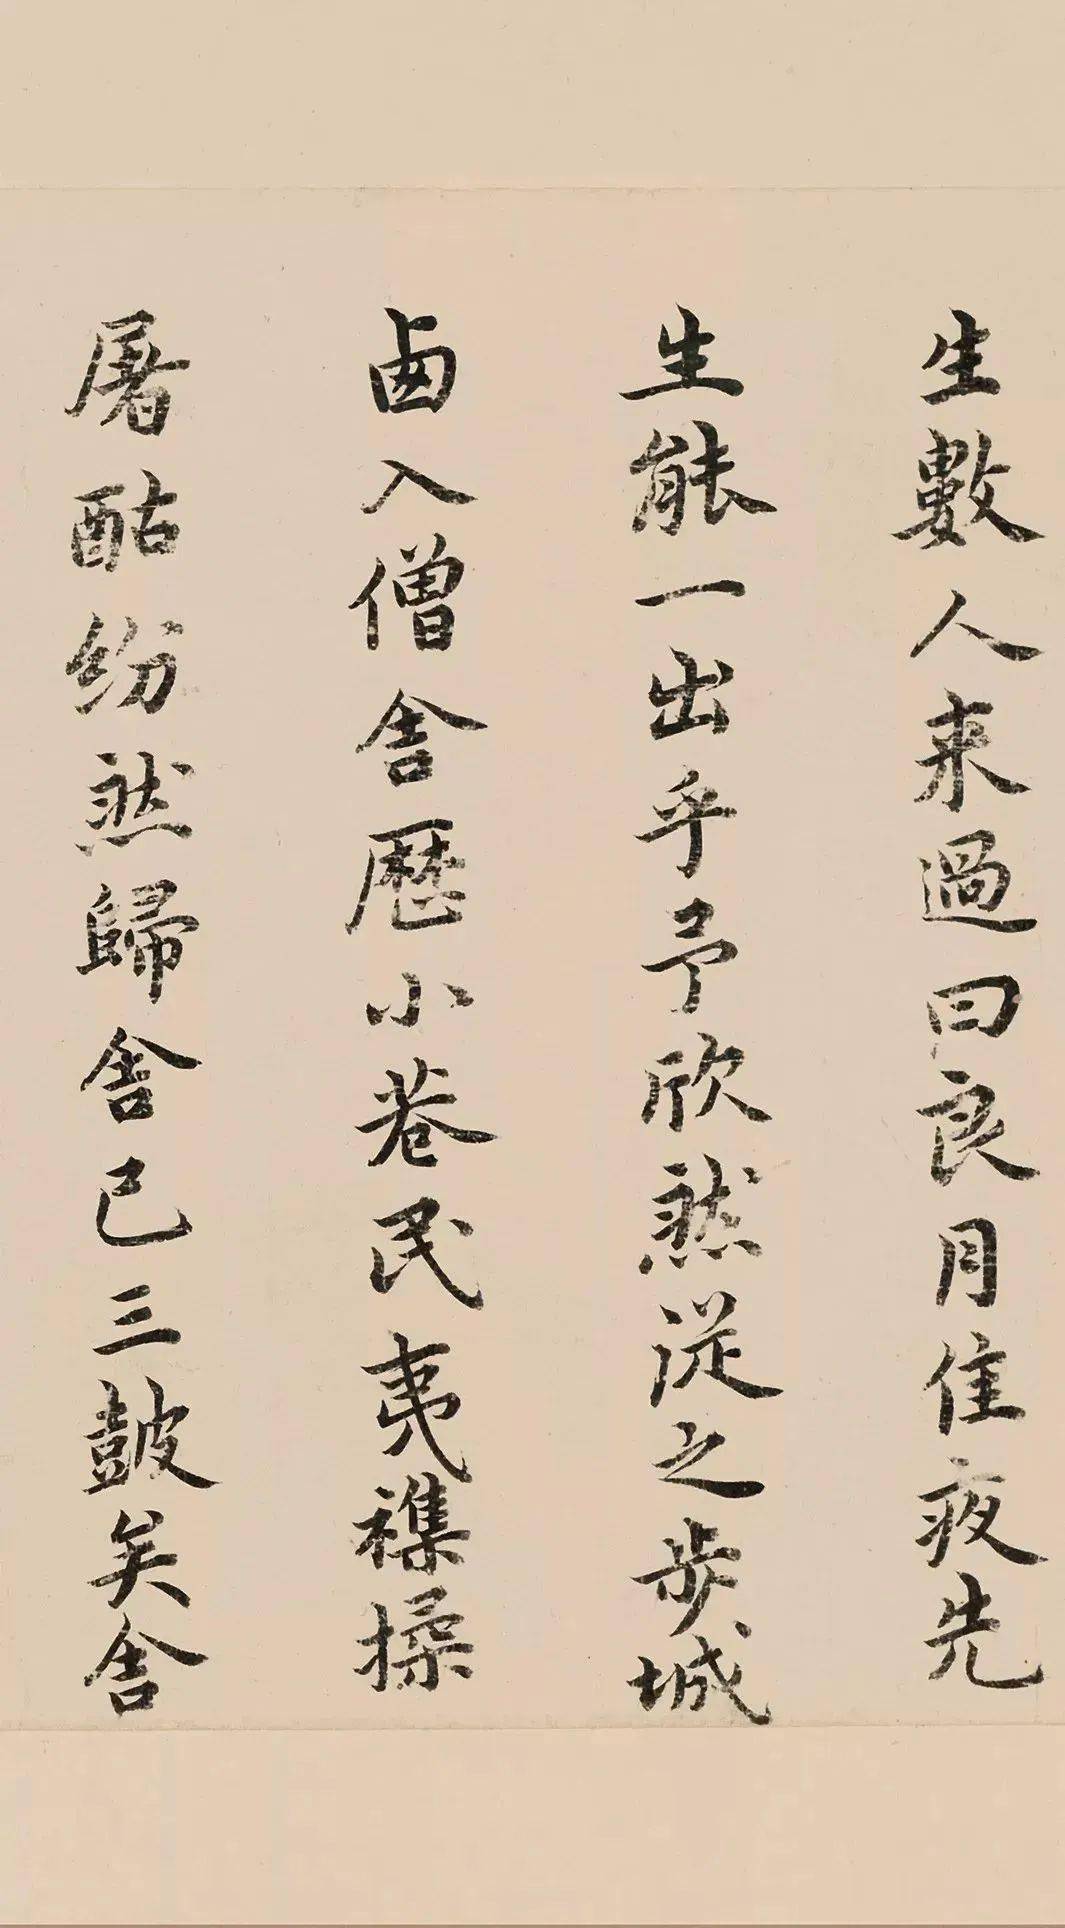 生數人来過曰良月佳夜先
生能一出乎予欣然從之步城
西入僧舍歷小巷民夷襍揉
屠酤紛然歸舍已三鼓矣舍